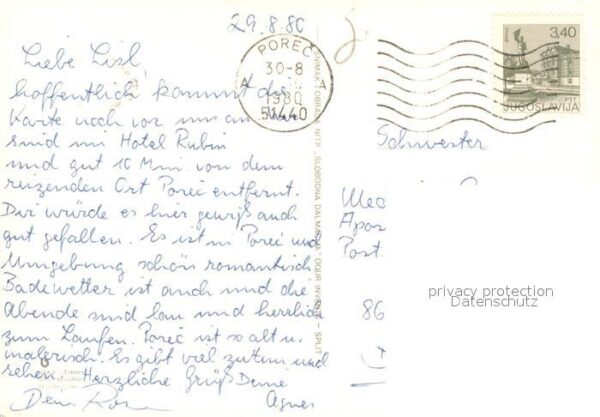 29.8.80
Liebe Lisl
hoffentlich kommt die
Karte noch vor uns an. Wir
sind im Hotel Rubin
und gut 10 Min von dem
reizenden Ort Poreč entfernt.
Dir würde es hier gewiß auch
gut gefallen. Es ist in Poreč und
Umgebung schön romantisch
Badewetter ist auch und die
Abende sind lau und herrlich
zum Laufen. Poreč ist so alt u.
malerisch. Es gibt viel zu tun und
sehen. Herzliche Grüße Deine
Agnes
Dein
POREČ
30-8
1980
51440
A A
3,40
JUGOSLAVIJA
SLOBODNA DALMACIJA
SPLIT
Schwester
Med
Apos
Post
86
privacy protection
Datenschutz